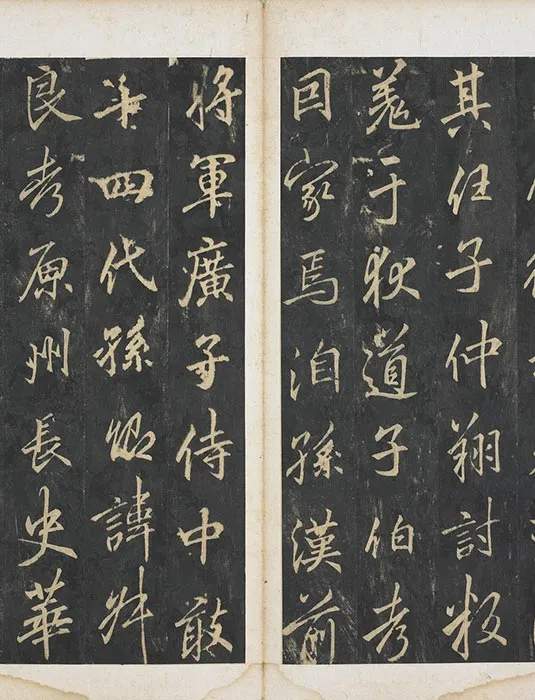 其任子仲翔討叛
羌于狄道子伯考
因家焉洎孫漢前
將軍廣子侍中敢
四代孫諱叔
良考原州長史華